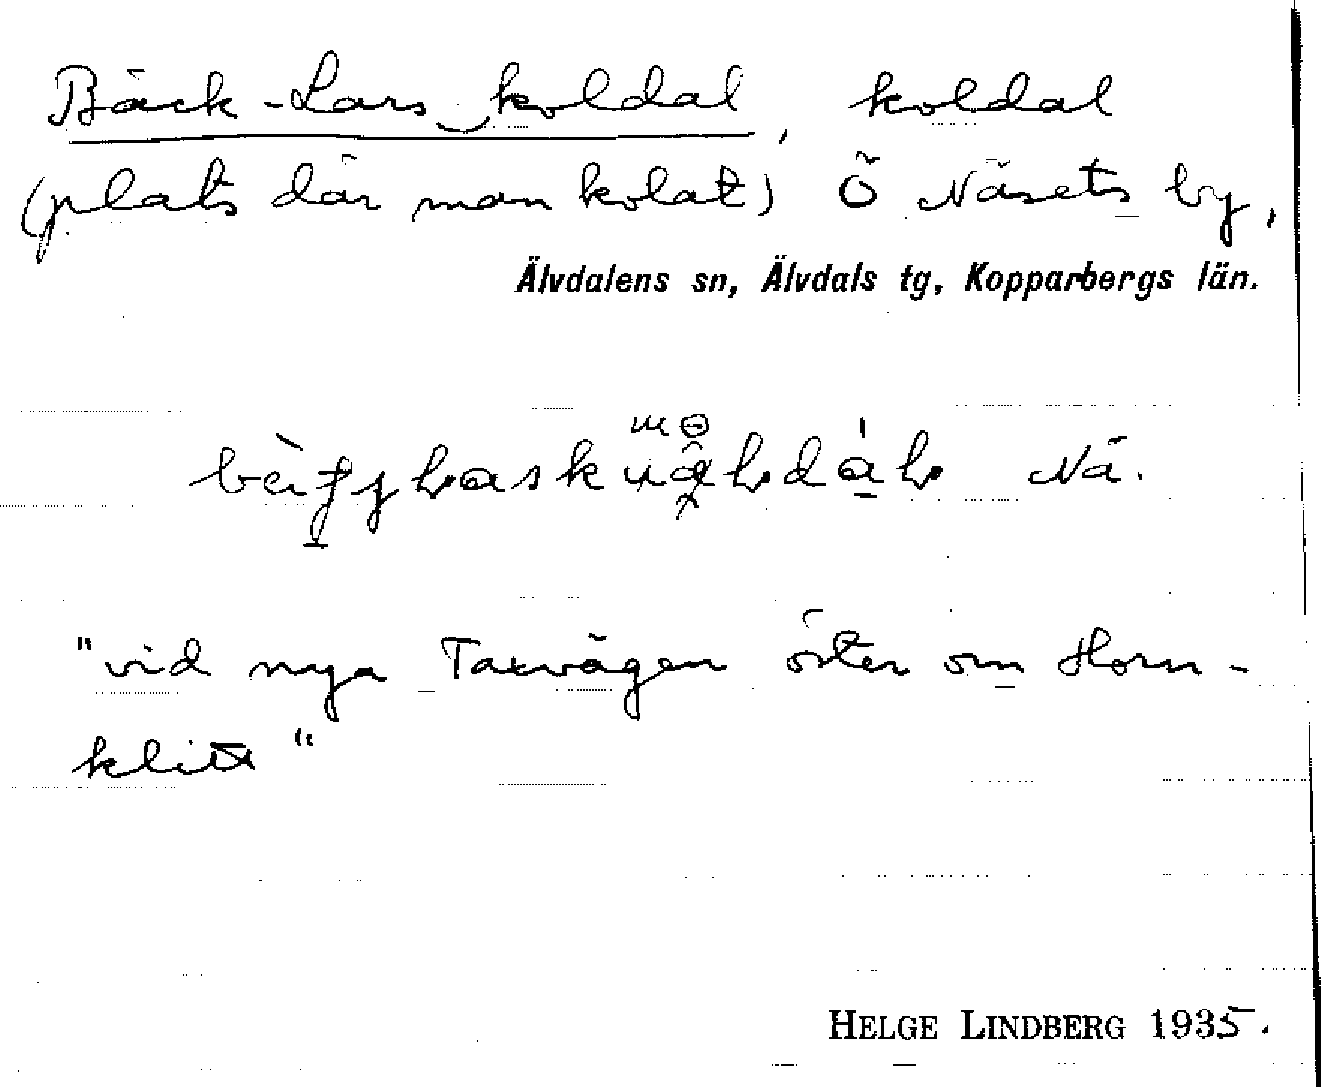 Bäck-Lars koldal, koldal
(plats där man kolat) Ö Näsets by,
Älvdalens sn, Älvdals tg, Kopparbergs län.
Nä.
"vid nya Taxvägen öster om Horn-
klitt"
HELGE LINDBERG 1935.